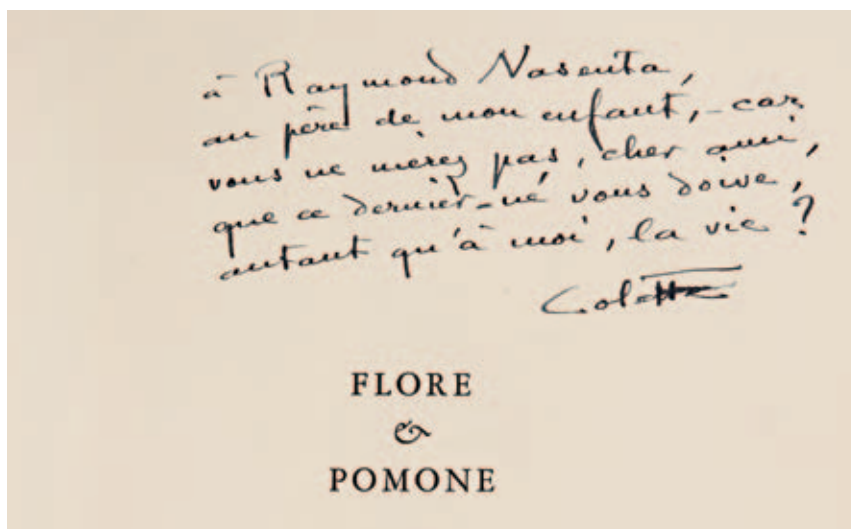 à Raymond Nasenta,
au père de mon enfant, - car
vous ne nierez pas, cher ami,
que ce dernier-né vous doive,
autant qu'à moi, la vie ?
Colette
FLORE
&
POMONE